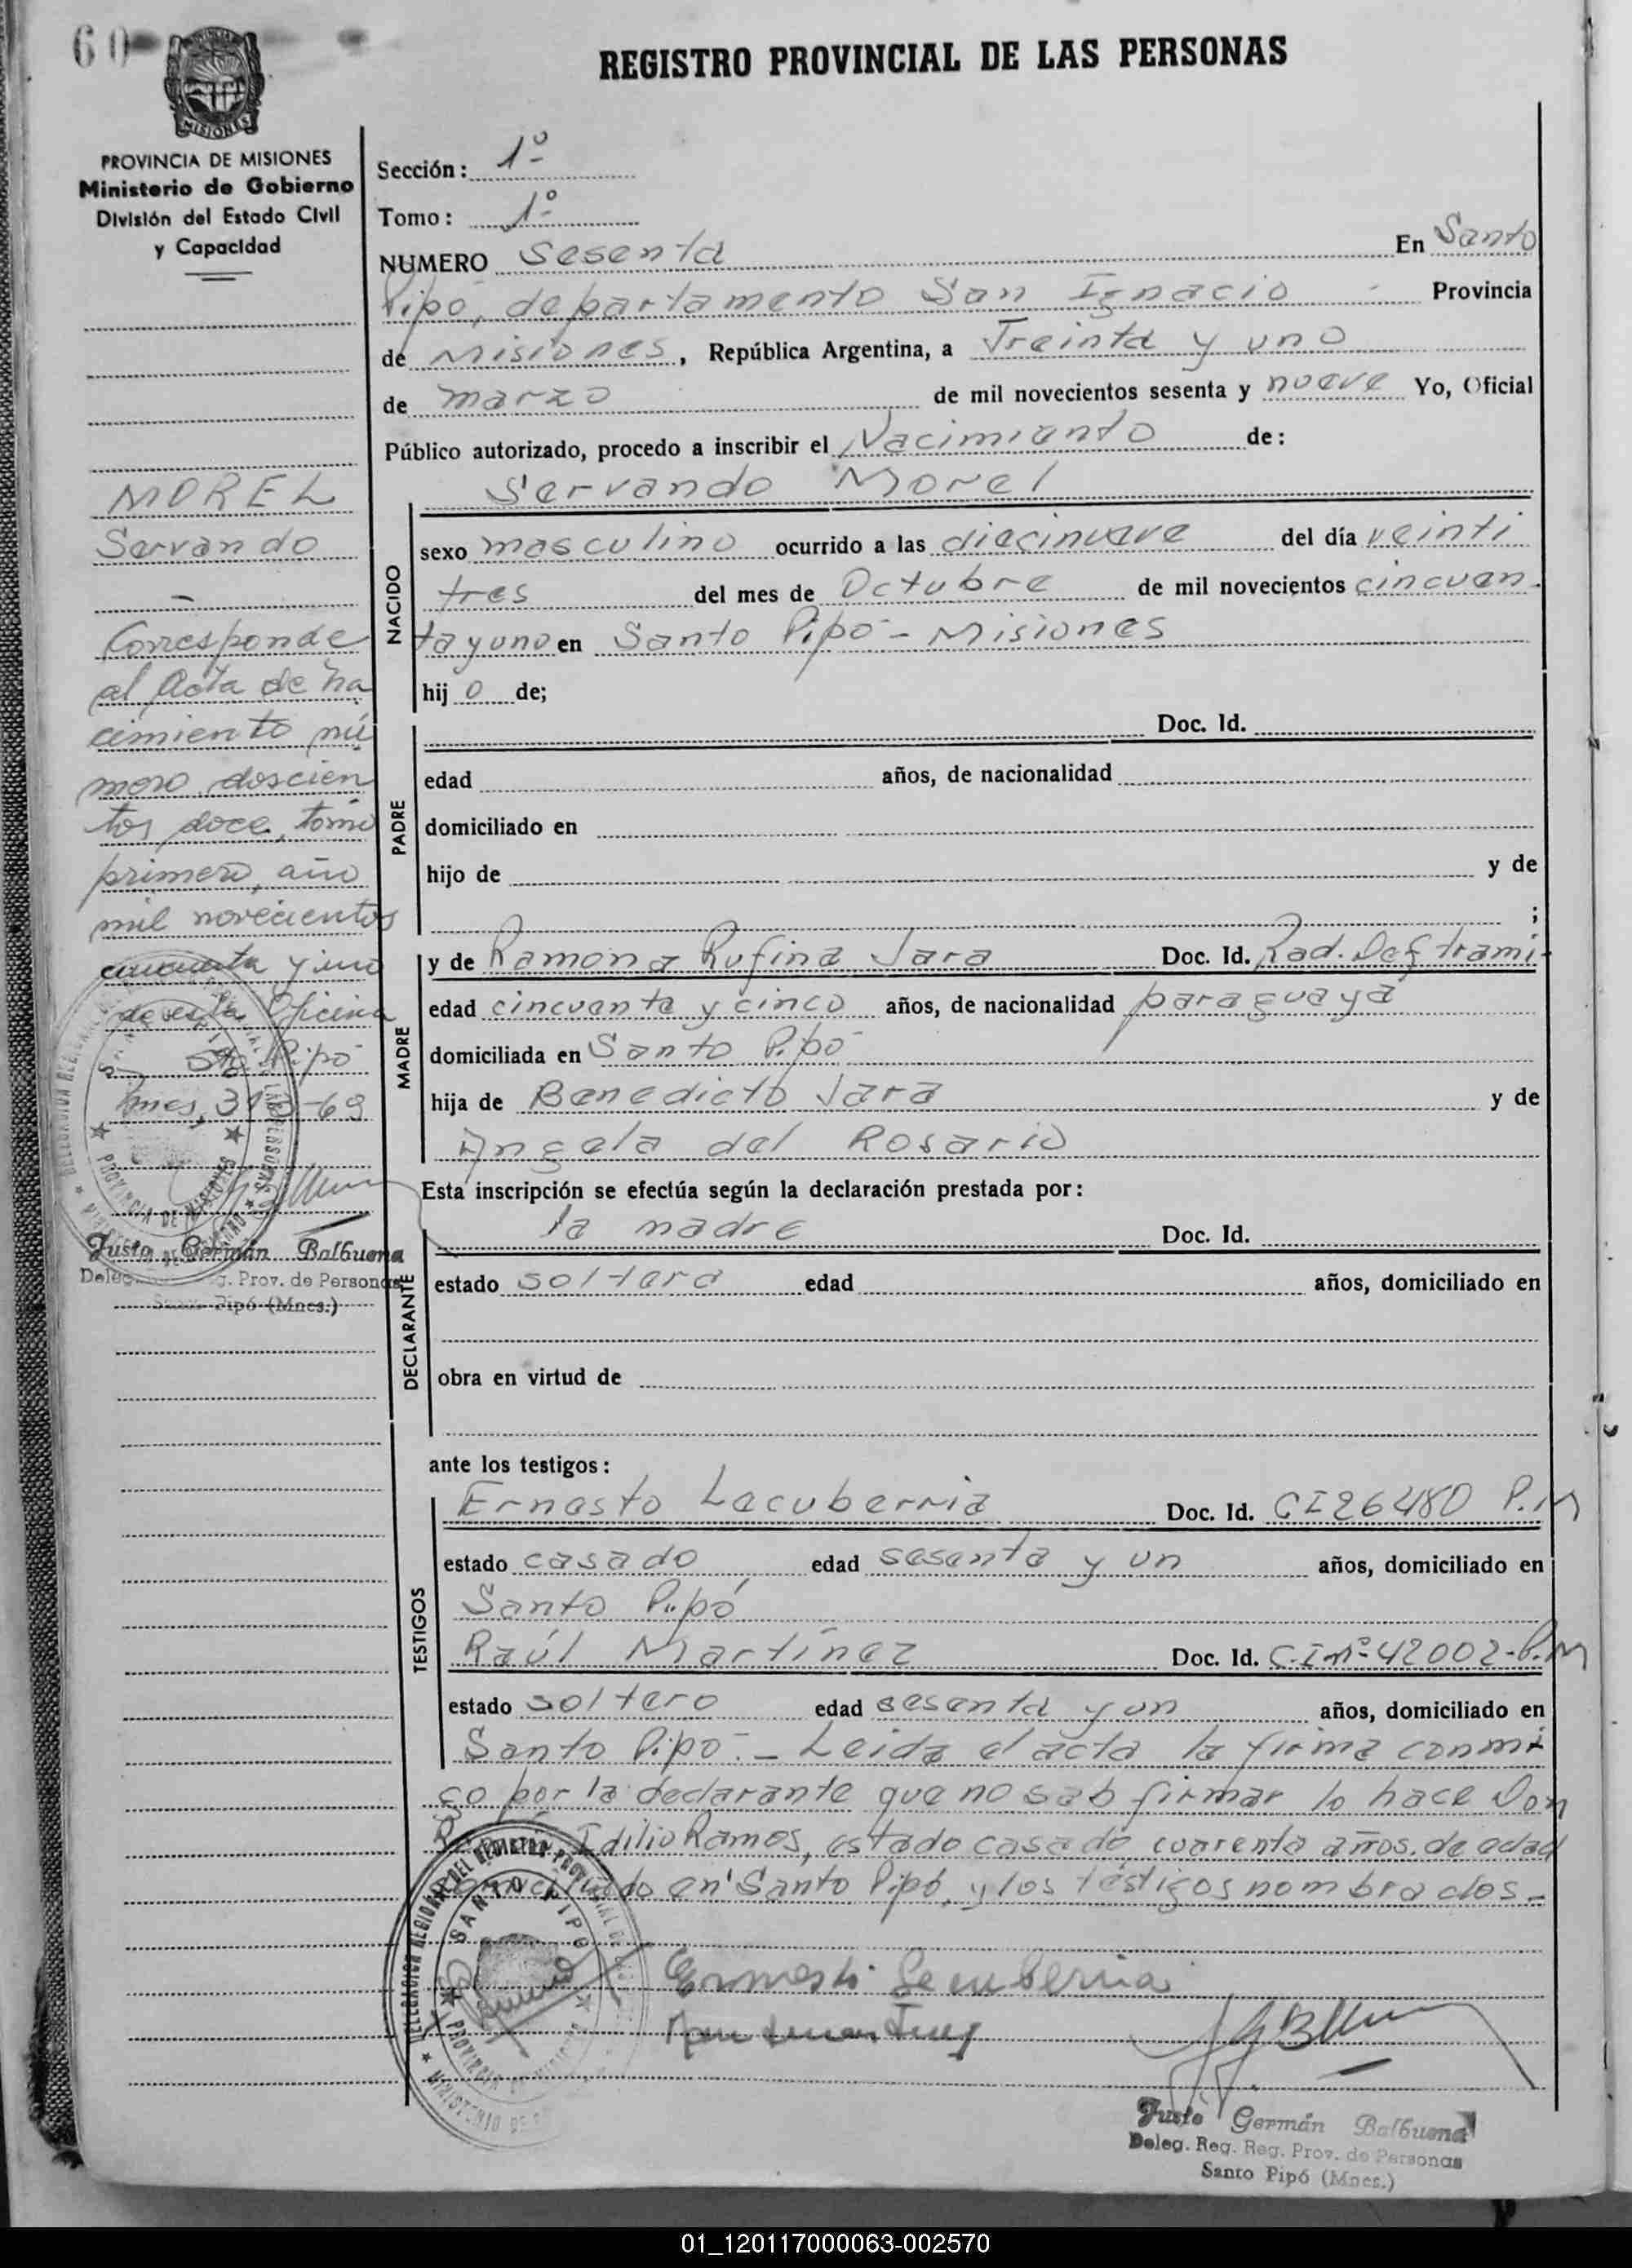 60
REGISTRO PROVINCIAL DE LAS PERSONAS
MISIONES
PROVINCIA DE MISIONES
Ministerio de Gobierno
División del Estado Civil
y Capacidad
Sección: 1º
Tomo: 1º
NUMERO Sesenta En Santo
Pipó, departamento San Ignacio Provincia
de Misiones, República Argentina, a Treinta y uno
de marzo de mil novecientos sesenta y nueve Yo, Oficial
Público autorizado, procedo a inscribir el Nacimiento de:
Servando Morel
MOREL
Servando
Corresponde
al Acta de na
cimiento nú
mero doscien
tos doce, tomo
primero, año
mil novecientos
cincuenta y uno
de esta Oficina
Sto. Pipó
Mnes, 31-3-69
Justo Germán Balbuena
Deleg. Prov. de Personas
Santo Pipó (Mnes.)
NACIDO
sexo masculino ocurrido a las diecinueve del día veinti
tres del mes de Octubre de mil novecientos cincuen-
ta y uno en Santo Pipó - Misiones
hijo de;
PADRE
Doc. Id.
edad años, de nacionalidad
domiciliado en
hijo de y de
;
MADRE
y de Ramona Rufina Jara Doc. Id. Rad. Def trami-
edad cincuenta y cinco años, de nacionalidad paraguaya
domiciliada en Santo Pipó
hija de Benedicto Jara y de
Angela del Rosario
Esta inscripción se efectúa según la declaración prestada por:
DECLARANTE
la madre Doc. Id.
estado soltera edad años, domiciliado en
obra en virtud de
ante los testigos:
TESTIGOS
Ernesto Lecuberria Doc. Id. CI 26480 P.M
estado casado edad sesenta y un años, domiciliado en
Santo Pipó
Raúl Martínez Doc. Id. C.I nº 42002-P.M
estado soltero edad sesenta y un años, domiciliado en
Santo Pipó.- Leida el acta la firma conmi
go por la declarante que no sab firmar lo hace Don
Idilio Ramos, estado casado, cuarenta años de edad
en Santo Pipó, y los testigos nombrados.-
SANTO PIPO
Ernesto Lecuberria
Justo Germán Balbuena
Deleg. Reg. Reg. Prov. de Personas
Santo Pipó (Mnes.)
01_120117000063-002570